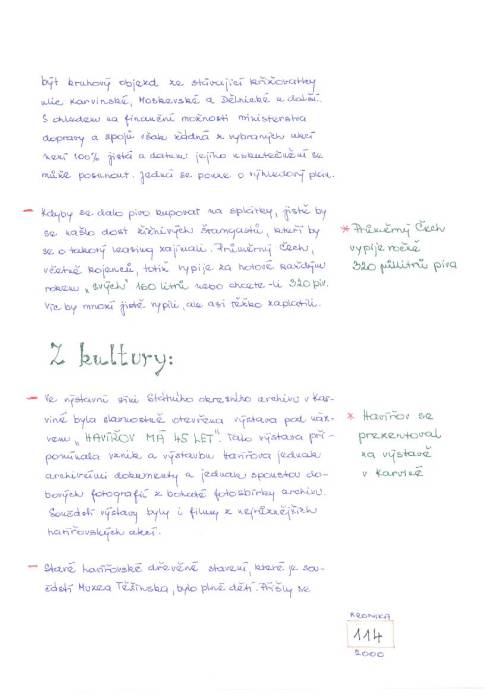 být kruhový objezd ze stávající křižovatky
ulic Karvinské, Moskevské a Dělnické a další.
S ohledem na finanční možnosti ministerstva
dopravy a spojů však žádná z vybraných akcí
není 100% jistá a datum jejího uskutečnění se
může posunout. Jedná se pouze o výhledový plán.
– Kdyby se dalo pivo kupovat na splátky, jistě by
se našlo dost žíznivých štamgastů, kteří by
se o takový leasing zajímali. Průměrný Čech,
včetně kojenců, totiž vypije za hotové každým
rokem „svých" 160 litrů nebo chcete-li 320 piv.
Víc by mnozí jistě vypili, ale asi těžko zaplatili.
* Průměrný Čech
vypije ročně
320 půllitrů piva
Z kultury:
– Ve výstavní síni Státního okresního archivu v Kar-
viné byla slavnostně otevřena výstava pod náz-
vem „HAVÍŘOV MÁ 45 LET". Tato výstava při-
pomínala vznik a výstavbu Havířova jednak
archivními dokumenty a jednak spoustou do-
bových fotografií z bohaté fotosbírky archivu.
Součástí výstavy byly i filmy z nejrůznějších
havířovských akcí.
* Havířov se
prezentoval
na výstavě
v Karviné
– Staré havířovské dřevěné stavení, které je sou-
částí Muzea Těšínska, bylo plné dětí. Přišly se
KRONIKA
114
2000